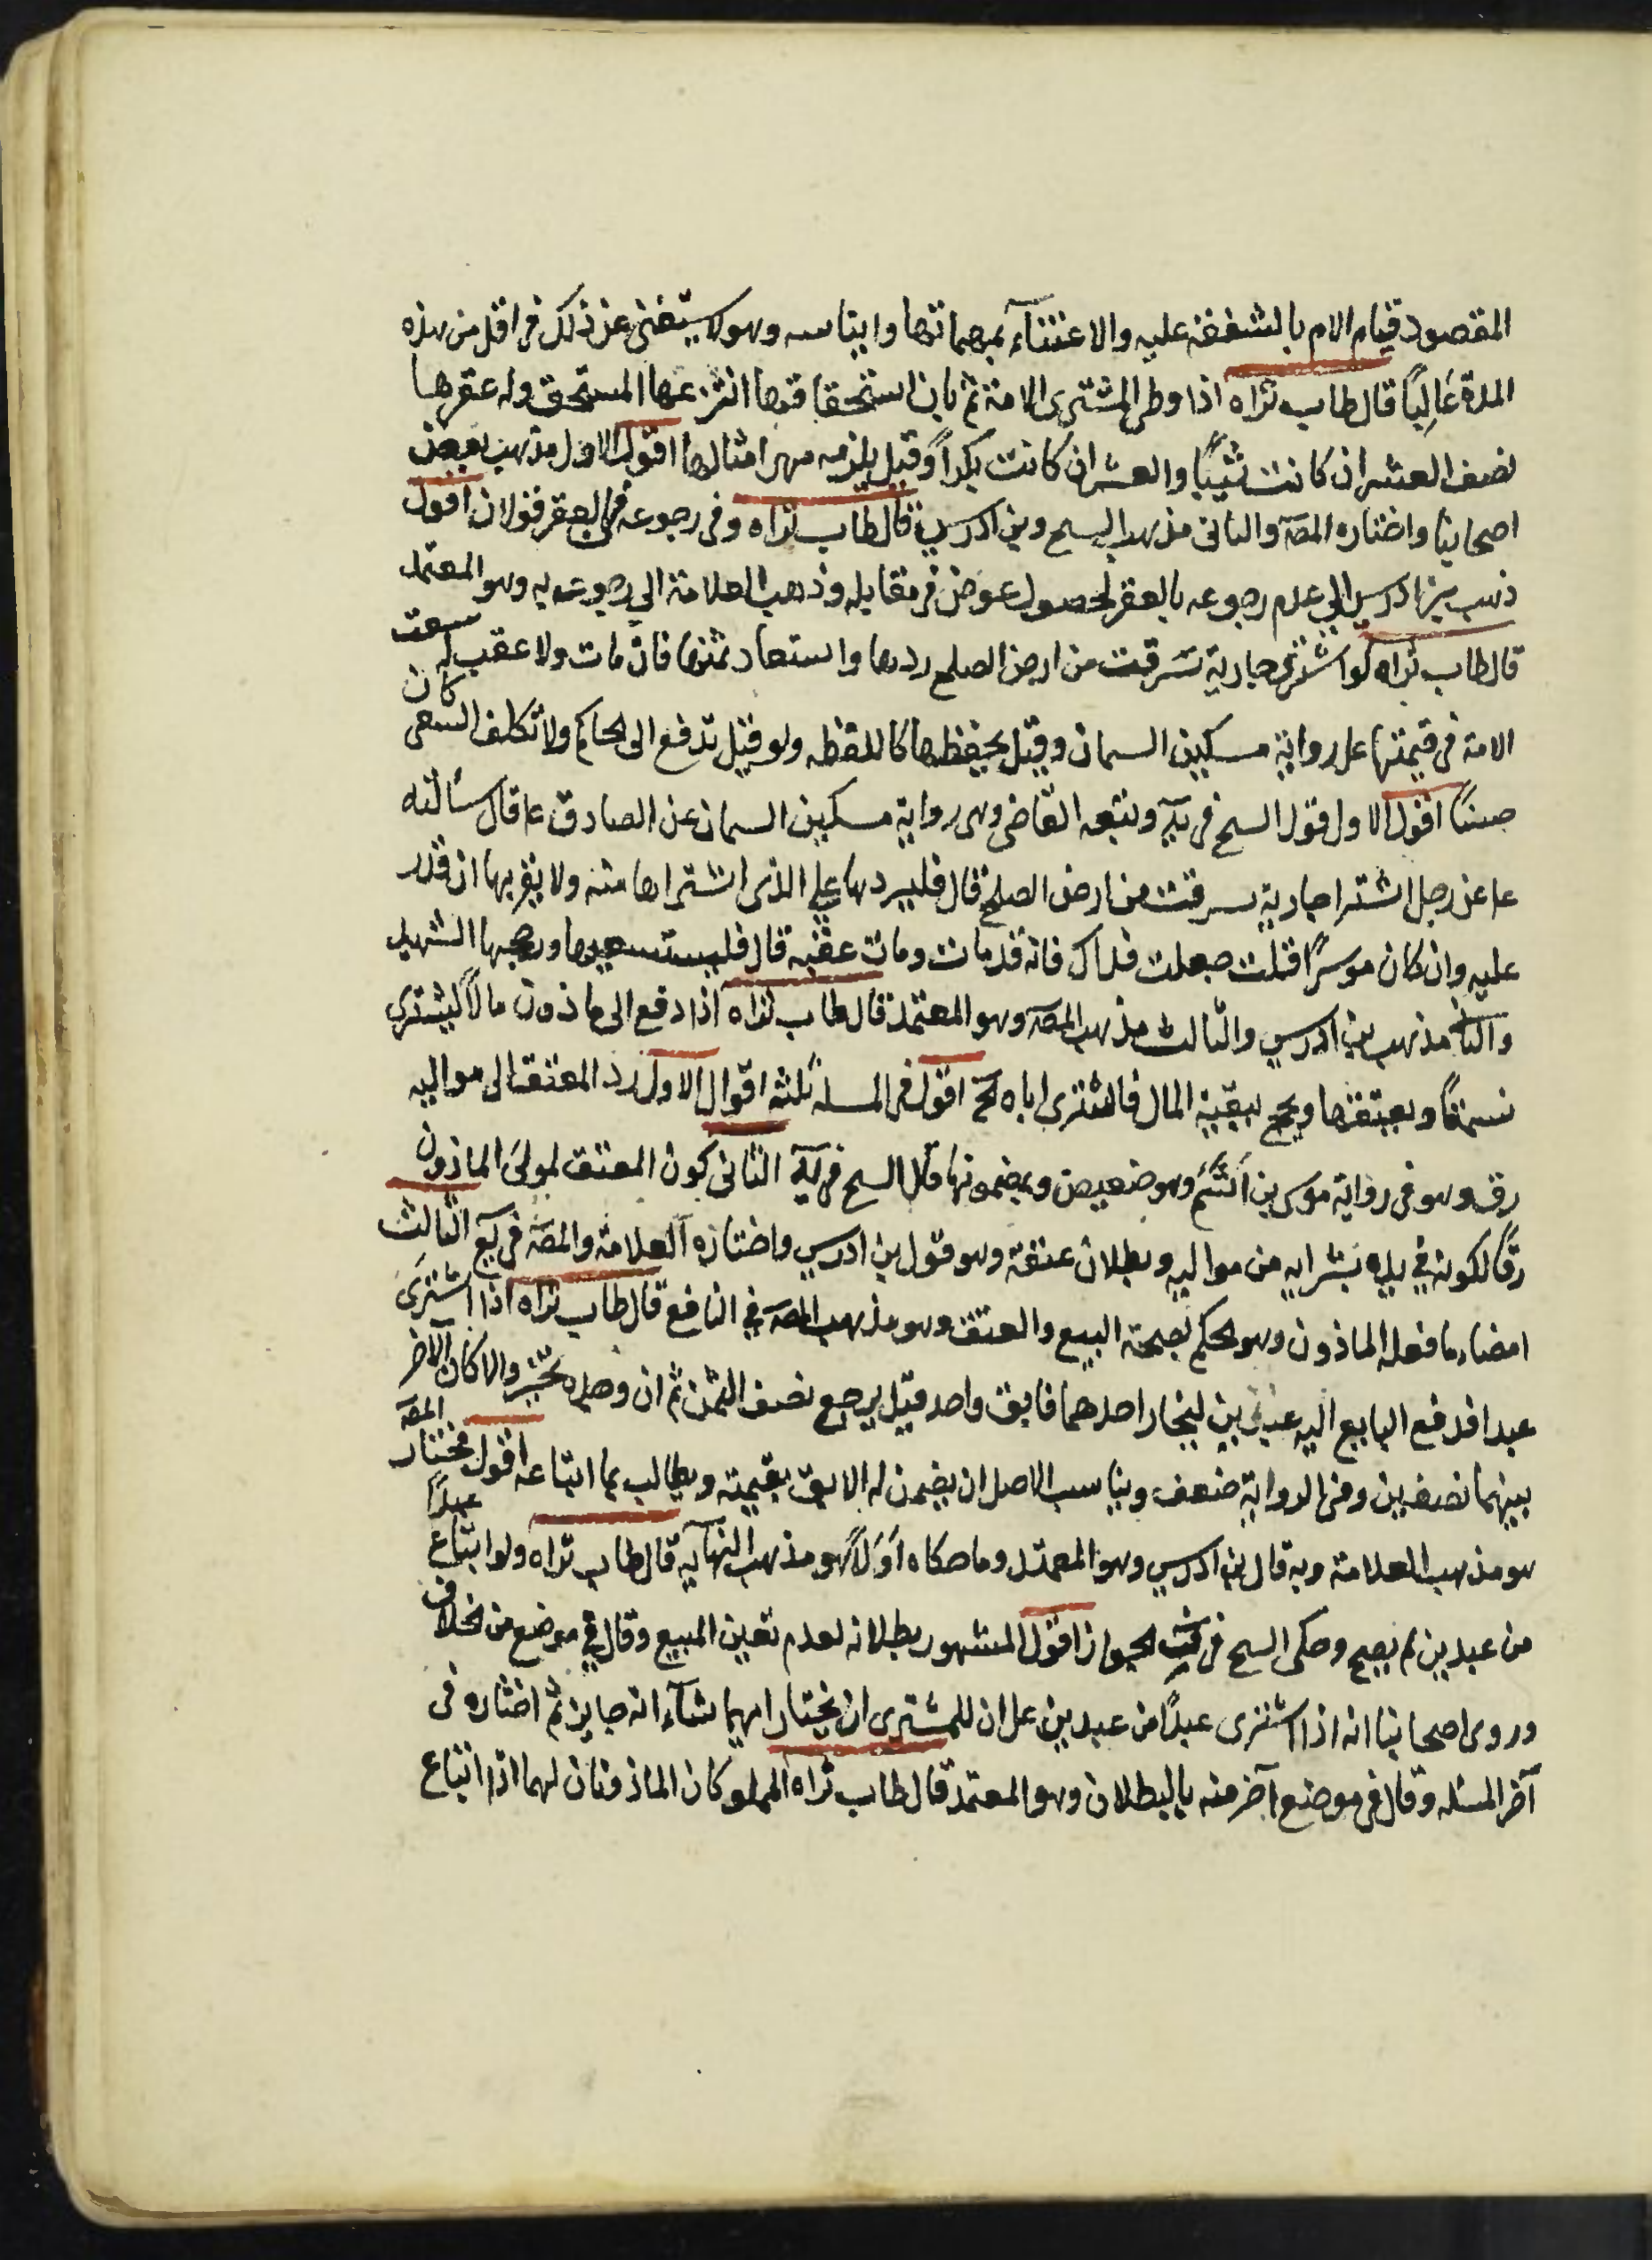 المقصود قيام الام بالشفقة عليه والاعتناء بمهماتها وايناسه وهو لا يستغنى عن ذلك فى اقل من هذه
المدة غالِبًا قال طاب ثراه اذا وطى المشترى الامة ثم بان استحقاقها انتزعها المستحق وله عقرها
نصف العشر ان كانت ثيبًا والعشر ان كانت بكراً وقيل يلزمه مهر امثالها اقول الاول مذهب بعض
اصحابنا واختاره المصَ والثانى مذهب الشيح وبن ادريس قال طاب ثراه وفى رجوعه بالعقر قولان اقول
ذهب بن ادريس الى عدم رجوعه بالعقر لحصول عوض فى مقابله وذهب العلامة الى رجوعه به وهو المعتمد
قال طاب ثراه لو اشترى جارية سرقت من ارض الصلح ردها واستعاد ثمنها فان مات ولا عقب له سعت
الامة فى قيمتها على رواية مسكين السمان وقيل يحفظها كاللقطه ولو قيل تدفع الى الحاكم ولا تكلف السعى كان
حسنًا اقول الاول قول الشيح فى يَه وتبعه القاضى وهى رواية مسكين السمان عن الصادق ع قال سألته
عن رجل اشترا جارية سرقت من ارض الصلح قال فليردها على الذى اشتراها منه ولا يقربها ان قدر
عليه وان كان موسرًا قلت جعلت فداك فانه قد مات ومات عقبه قال فليستسعيها ورجحها الشهيد
والثانى مذهب بن ادريس والثالث مذهب المصَ وهو المعتمد قال طاب ثراه اذا دفع الى ماذون مالاً ليشترى
نسمةً ويعتقها ويحج ببقية المال فاشترى اباه الخ اقول فى المسله ثلثة اقوال الاول رد المعتق الى مواليه
رق وهو فى رواية موسى بن اشيَم وهو ضعيف وبمضمونها قال الشيح فى يَه الثانى كون المعتق لمولى الماذون
رقًا لكونه فى يده بشرايه من مواليه وبطلان عتقه وهو قول بن ادريس واختاره العلامة والمصَ فى يَع الثالث
امضاء ما فعله الماذون وهو الحكم بصحة البيع والعتق وهو مذهب المصَ فى النافع قال طاب ثراه اذا اشترى
عبدا فدفع البايع اليه عبدين ليختار احدهما فابق واحد قيل يرجع نصف الثمن ثم ان وجده تخيّر والا كان الاخر
بينهما نصفين وفى الرواية ضعف ويناسب الاصل ان يضمن له الابق بقيمته ويطالب بما ابتاعه اقول مختار المصَ
هو مذهب العلامة وبه قال بن ادريس وهو المعتمد وما حكاه اَوَلاً هو مذهب النهاية قال طاب ثراه ولو ابتاع عبداً
من عبدين لم يصح وحكى الشيح فى الجواز اقول المشهور بطلانه لعدم تعين المبيع وقال فى موضع من الخلاف
وروى اصحابنا انه اذا اشترى عبدًا من عبدين على ان للمشترى ان يختار ايهما شاء انه جايز ثم اختاره فى
آخر المسئله وقال فى موضع آخر منه بالبطلان وهو المعتمد قال طاب ثراه المملوكان الماذونان لهما اذا ابتاع